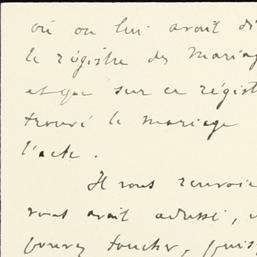 où on lui avait di
le régistre des Mariag
et que sur ce régist
trouvé le mariage
l'acte.
Il vous renvoie
vous avait adressé,
pouvez toucher, puis